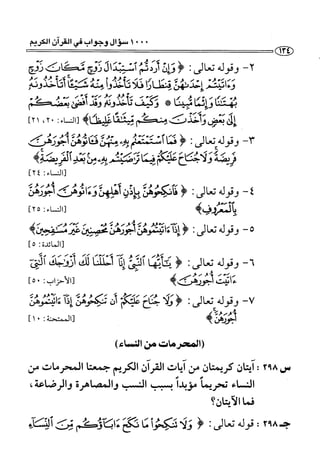 ١٠٠٠ سؤال وجواب في القرآن الكريم
١٣٤
٢- وقوله تعالى: ﴿ وَإِنْ أَرَدتُّمُ ٱسْتِبْدَالَ زَوْجٍ مَّكَانَ زَوْجٍ
وَءَاتَيْتُمْ إِحْدَىٰهُنَّ قِنطَارًا فَلَا تَأْخُذُوا۟ مِنْهُ شَيْـًٔا أَتَأْخُذُونَهُۥ
بُهْتَٰنًا وَإِثْمًا مُّبِينًا ۞ وَكَيْفَ تَأْخُذُونَهُۥ وَقَدْ أَفْضَىٰ بَعْضُكُمْ
إِلَىٰ بَعْضٍ وَأَخَذْنَ مِنكُم مِّيثَٰقًا غَلِيظًا﴾ [النساء: ٢٠، ٢١]
٣- وقوله تعالى: ﴿ فَمَا ٱسْتَمْتَعْتُم بِهِۦ مِنْهُنَّ فَـَٔاتُوهُنَّ أُجُورَهُنَّ
فَرِيضَةً وَلَا جُنَاحَ عَلَيْكُمْ فِيمَا تَرَٰضَيْتُم بِهِۦ مِنۢ بَعْدِ ٱلْفَرِيضَةِ﴾
[النساء: ٢٤]
٤- وقوله تعالى: ﴿ فَٱنكِحُوهُنَّ بِإِذْنِ أَهْلِهِنَّ وَءَاتُوهُنَّ أُجُورَهُنَّ
بِٱلْمَعْرُوفِ﴾ [النساء: ٢٥]
٥- وقوله تعالى: ﴿ إِذَآ ءَاتَيْتُمُوهُنَّ أُجُورَهُنَّ مُحْصِنِينَ غَيْرَ مُسَٰفِحِينَ﴾
[المائدة: ٥]
٦- وقوله تعالى: ﴿ يَٰٓأَيُّهَا ٱلنَّبِىُّ إِنَّآ أَحْلَلْنَا لَكَ أَزْوَٰجَكَ ٱلَّٰتِىٓ
ءَاتَيْتَ أُجُورَهُنَّ﴾ [الأحزاب: ٥٠]
٧- وقوله تعالى: ﴿ وَلَا جُنَاحَ عَلَيْكُمْ أَن تَنكِحُوهُنَّ إِذَآ ءَاتَيْتُمُوهُنَّ
أُجُورَهُنَّ﴾ [الممتحنة: ١٠]
(المحرمات من النساء)
س ٢٩٨ : آيتان كريمتان من آيات القرآن الكريم جمعتا المحرمات من
النساء تحريماً مؤبداً بسبب النسب والمصاهرة والرضاعة،
فما الآيتان؟
جـ ٢٩٨ : قوله تعالى: ﴿ وَلَا تَنكِحُوا۟ مَا نَكَحَ ءَابَآؤُكُم مِّنَ ٱلنِّسَآءِ